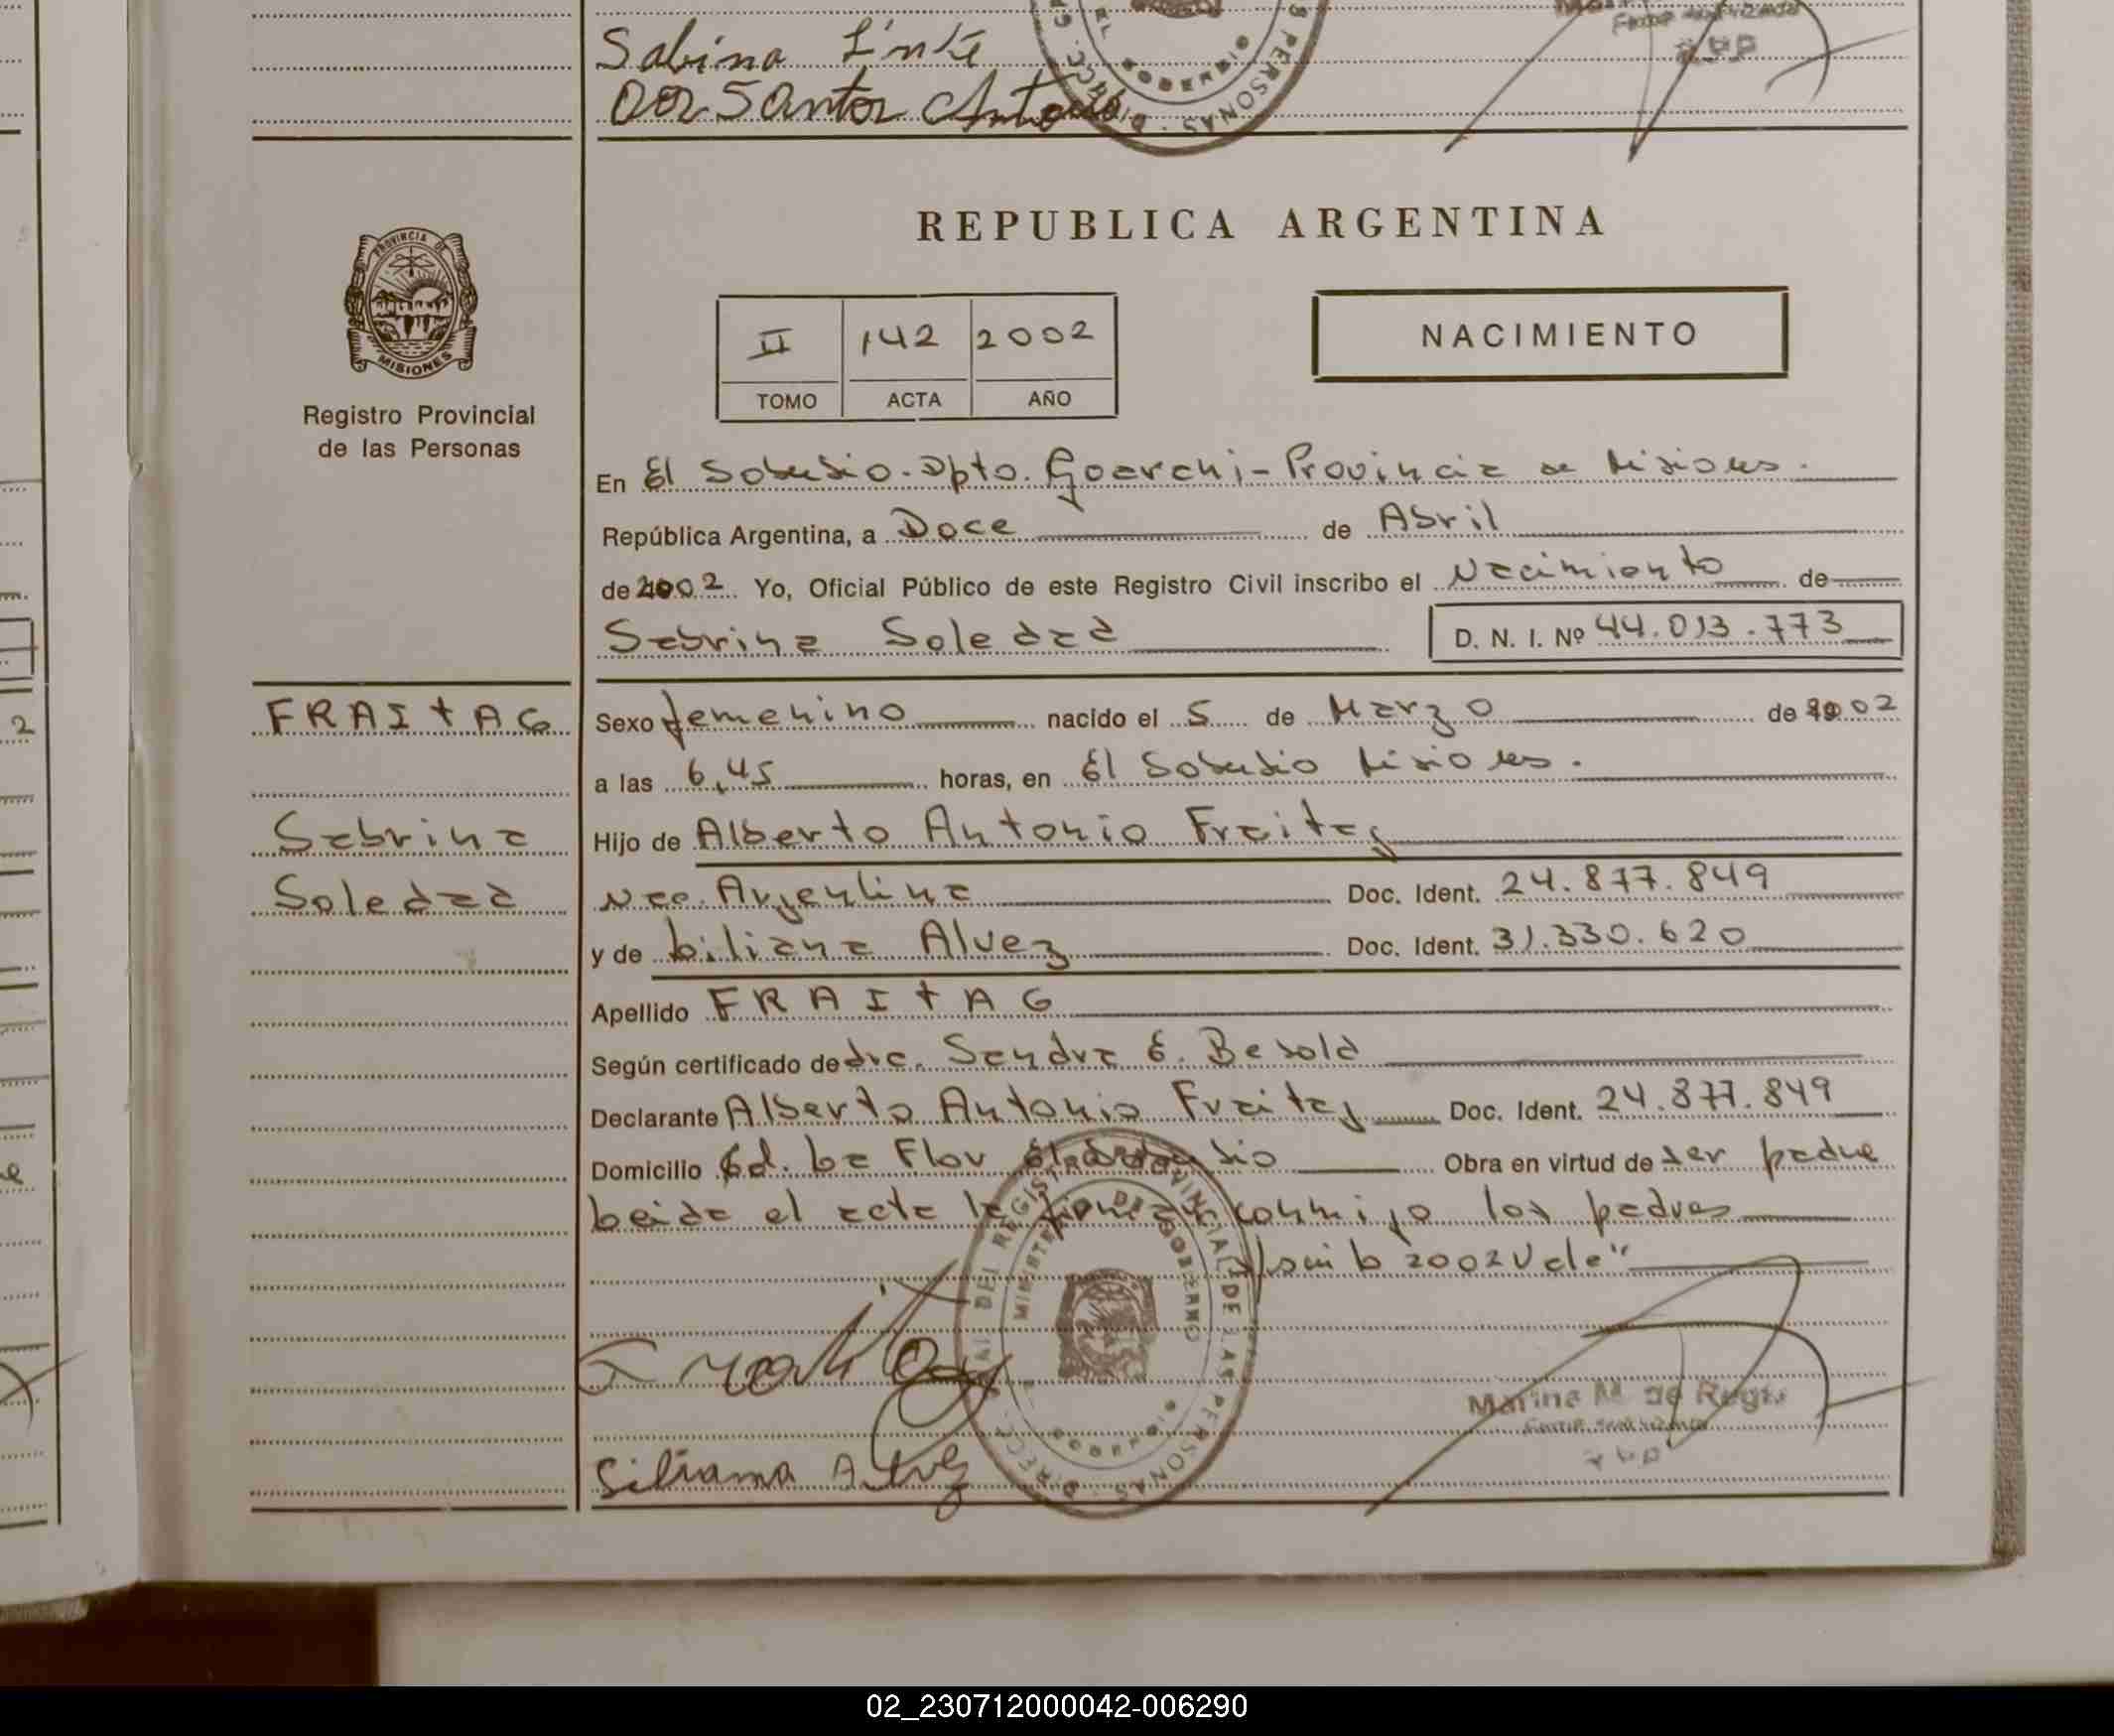 Sabina
Dos Santos Antonio
PERSONAS
REPUBLICA ARGENTINA
PROVINCIA DE
MISIONES
Registro Provincial
de las Personas
II 142 2002
TOMO ACTA AÑO
NACIMIENTO
En El Soberbio. Dpto. Guaraní - Provincia de Misiones.
República Argentina, a Doce de Abril
de 2002 Yo, Oficial Público de este Registro Civil inscribo el Nacimiento de
Sabrina Soledad D. N. I. Nº 44.013.773
FRAITAG
Sabrina
Soledad
Sexo femenino nacido el 5 de Marzo de 2002
a las 6,45 horas, en El Soberbio Misiones.
Hijo de Alberto Antonio Fraitag
Nac. Argentina Doc. Ident. 24.877.849
y de Liliana Alvez Doc. Ident. 31.330.620
Apellido FRAITAG
Según certificado de dra. Sandra E. Besold
Declarante Alberto Antonio Fraitag Doc. Ident. 24.877.849
Domicilio Cd. La Flor El Soberbio Obra en virtud de ser padre
Leida el acta la firman conmigo los padres
2002 Vale"
DIRECC. GRAL DEL REGISTRO PROVINCIAL DE LAS PERSONAS
MINISTERIO DE GOBIERNO
Fraitag
Marina M. de Regis
Liliana Alvez
02_230712000042-006290